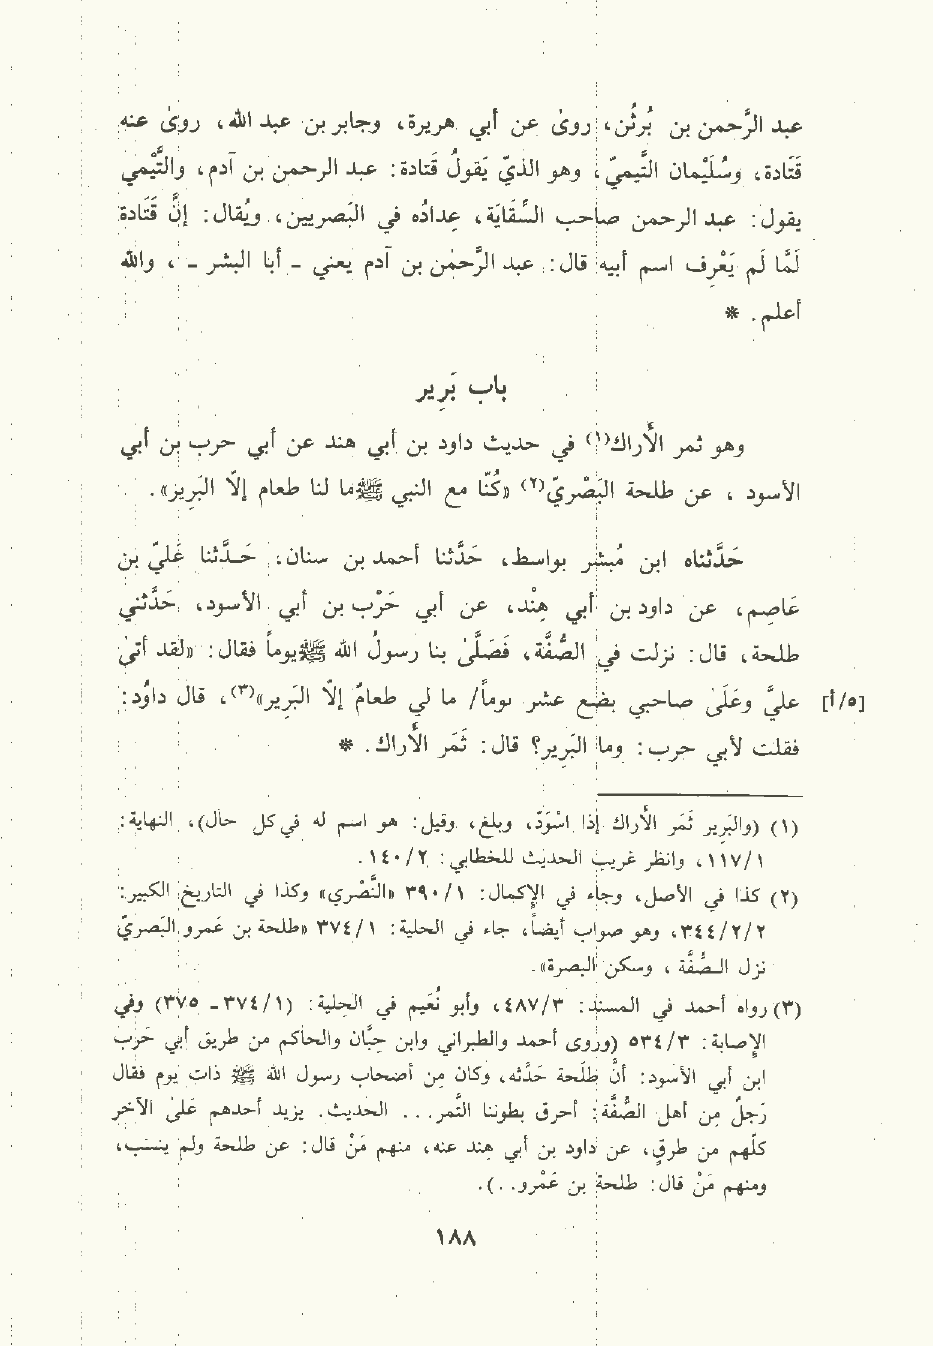 عبد الرَّحمن بن بُرثُن، روىٰ عن أبي هريرة، وجابر بن عبد الله، روىٰ عنه
قَتَادة، وسُلَيْمان التَّيميّ، وهو الذيّ يَقولُ قَتادة: عبد الرحمن بن آدم، والتَّيْمي
يقول: عبد الرحمن صاحب السِّقَايَة، عِدادُه في البَصريين، ويُقال: إنَّ قَتَادة
لَمَّا لَم يَعْرِف اسم أبيه قال: عبد الرَّحمٰن بن آدم يعني ـ أبا البشر ـ ، والله
أعلم. *
باب بَرِير
وهو ثمر الأَراك(١) في حديث داود بن أبي هند عن أبي حرب بن أبي
الأسود ، عن طلحة البَصْريّ(٢) «كُنّا مع النبي ﷺ ما لنا طعام إلّا البَرِير».
حَدَّثناه ابن مُبشر بواسط، حَدَّثنا أحمد بن سنان، حَـدَّثنا عَليّ بن
عَاصِم، عن داود بن أبي هِنْد، عن أبي حَرْب بن أبي الأسود، حَدَّثني
طلحة، قال: نزلت في الصُّفَّة، فَصَلَّىٰ بنا رسولُ الله ﷺ يوماً فقال: «لقد أتىٰ
[٥/أ] عليَّ وعَلَىٰ صاحبي بضع عشر يوماً/ ما لي طعامٌ إلّا البَرِير»(٣)، قال داوُد:
فقلت لأبي حرب: وما البَرِير؟ قال: ثَمَر الأَراك. *
(١) (والبَرِير ثَمَر الأَراك إذا اسْوَدّ، وبلغ، وقيل: هو اسم له في كل حال)، النهاية:
١١٧/١، وانظر غريب الحديث للخطابي: ١٤٠/٢.
(٢) كذا في الأصل، وجاء في الإكمال: ٣٩٠/١ «النَّصْري» وكذا في التاريخ الكبير:
٣٤٤/٢/٢، وهو صواب أيضاً، جاء في الحلية: ٣٧٤/١ «طلحة بن عَمرو البَصريّ
نزل الـصُّفَّة ، وسكن البصرة».
(٣) رواه أحمد في المسند: ٤٨٧/٣، وأبو نُعَيم في الحِلية: (٣٧٤/١ ـ ٣٧٥) وفي
الإصابة: ٥٣٤/٣ (وروى أحمد والطبراني وابن حِبَّان والحاكم من طريق أبي حَرب
ابن أبي الأسود: أن طلَحة حَدَّثه، وكان مِن أصحاب رسول الله ﷺ ذات يوم فقال
رَجلٌ مِن أهل الصُّفَّة: أحرق بطوننا التَّمر... الحديث. يزيد أحدهم عَلىٰ الآخر
كلّهم من طرق، عن داود بن أبي هِند عنه، منهم مَنْ قال: عن طلحة ولم ينسب،
ومنهم مَنْ قال: طلحة بن عَمْرو..).
١٨٨